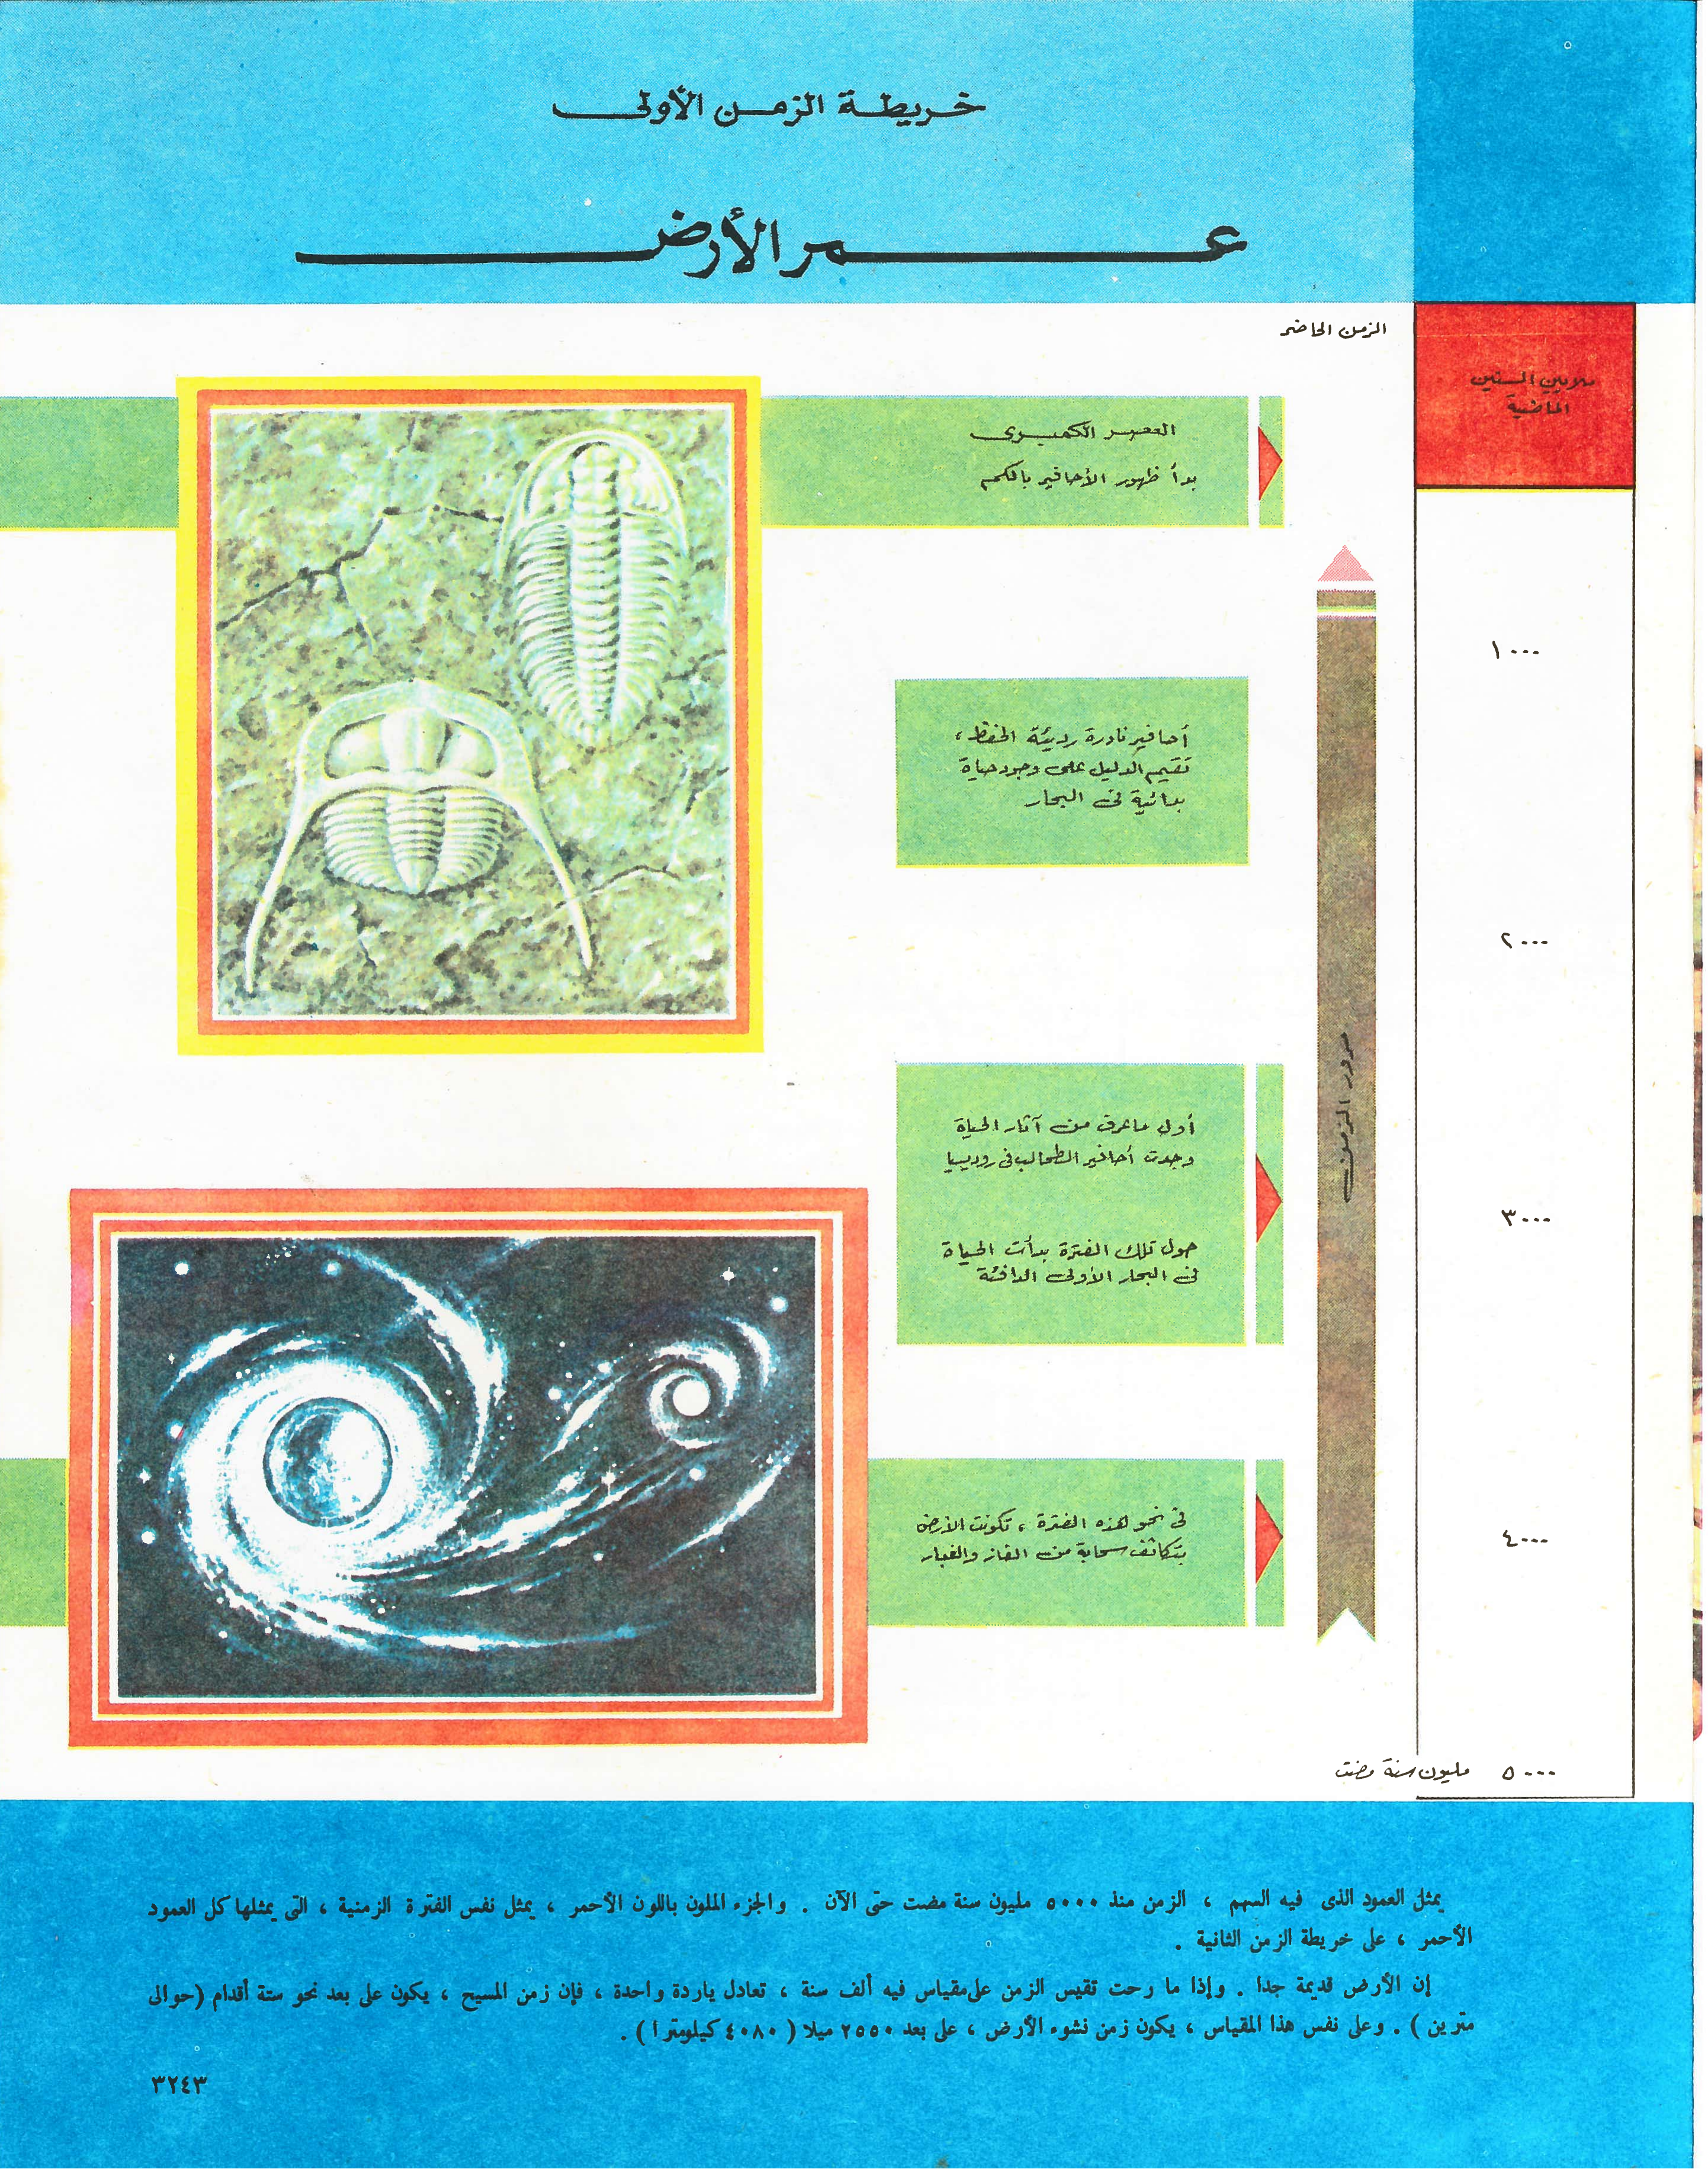 خريطة الزمن الأولى
عمر الأرض
الزمن الحاضر
ملايين السنين
الماضية
العصر الكمبرى
بدأ ظهور الأحافير بالكم
١٠٠٠
أحافير نادرة رديئة الحفظ ،
تقيم الدليل على وجود حياة
بدائية فى البحار
٢٠٠٠
مرور الزمن
أول ما عرف من آثار الحياة
وجدت أحافير الطحالب فى روديسيا
٣٠٠٠
حول تلك الفترة بدأت الحياة
فى البحار الأولى الدافئة
فى نحو هذه الفترة ، تكونت الأرض
بتكاثف سحابة من الغاز والغبار
٤٠٠٠
٥٠٠٠ مليون سنة مضت
يمثل العمود الذى فيه السهم ، الزمن منذ ٥٠٠٠ مليون سنة مضت حتى الآن . والجزء الملون باللون الأحمر ، يمثل نفس الفترة الزمنية ، التى يمثلها كل العمود
الأحمر ، على خريطة الزمن الثانية .
إن الأرض قديمة جدا . وإذا ما رحت تقيس الزمن على مقياس فيه ألف سنة ، تعادل ياردة واحدة ، فإن زمن المسيح ، يكون على بعد نحو ستة أقدام (حوالى
مترين ) . وعلى نفس هذا المقياس ، يكون زمن نشوء الأرض ، على بعد ٢٥٥٠ ميلا ( ٤٠٨٠ كيلومترا ) .
٣٢٤٣